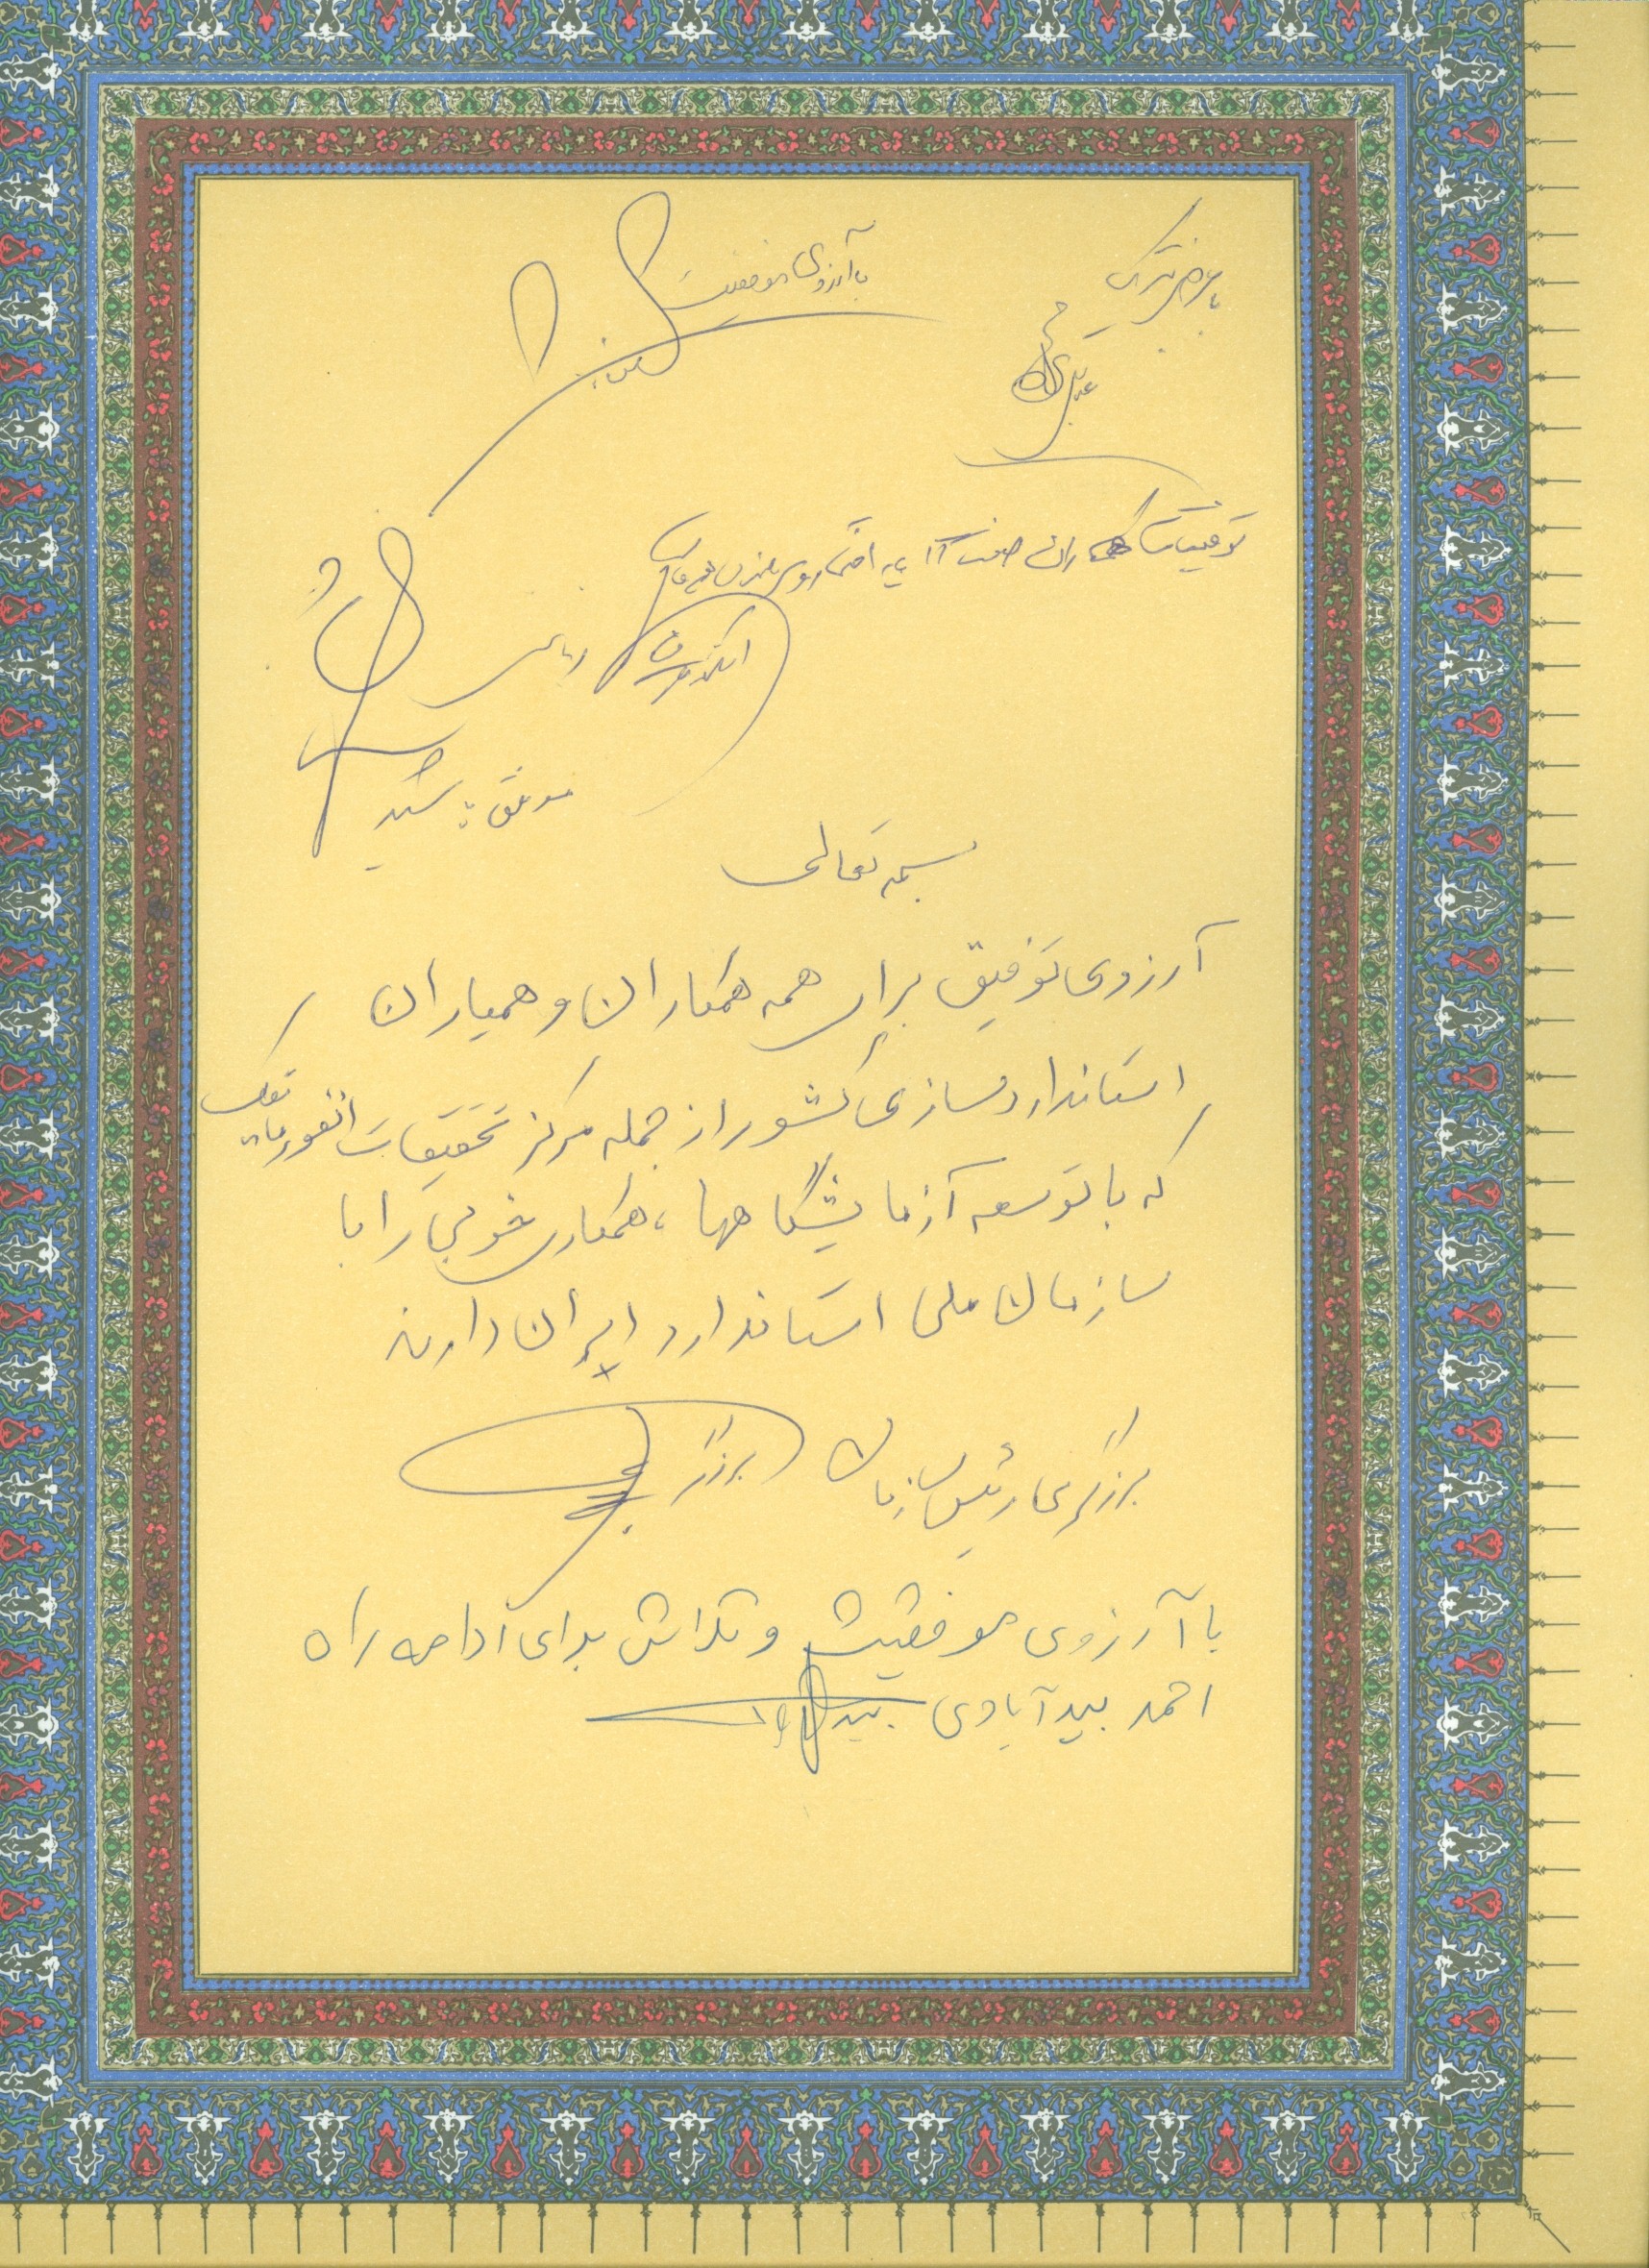 با عرض تبریک
با آرزوی موفقیت
توفیقات همکاران صنعت آ
موفق باشید
بسمه تعالی
آرزوی توفیق برای همه همکاران و همیاران
استانداردسازی کشور از جمله مرکز تحقیقات انفورماتیک
که با توسعه آزمایشگاهها، همکاری خوبی را با
سازمان ملی استاندارد ایران دارند
برزگری رئیس سازمان
با آرزوی موفقیت و تلاش برای ادامه راه
احمد بیدآبادی